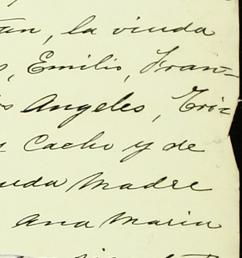 tan, la viuda
s, Emilio, Fran-
os Angeles, Tri-
Cacho y de
uda Madre
Ana Maria